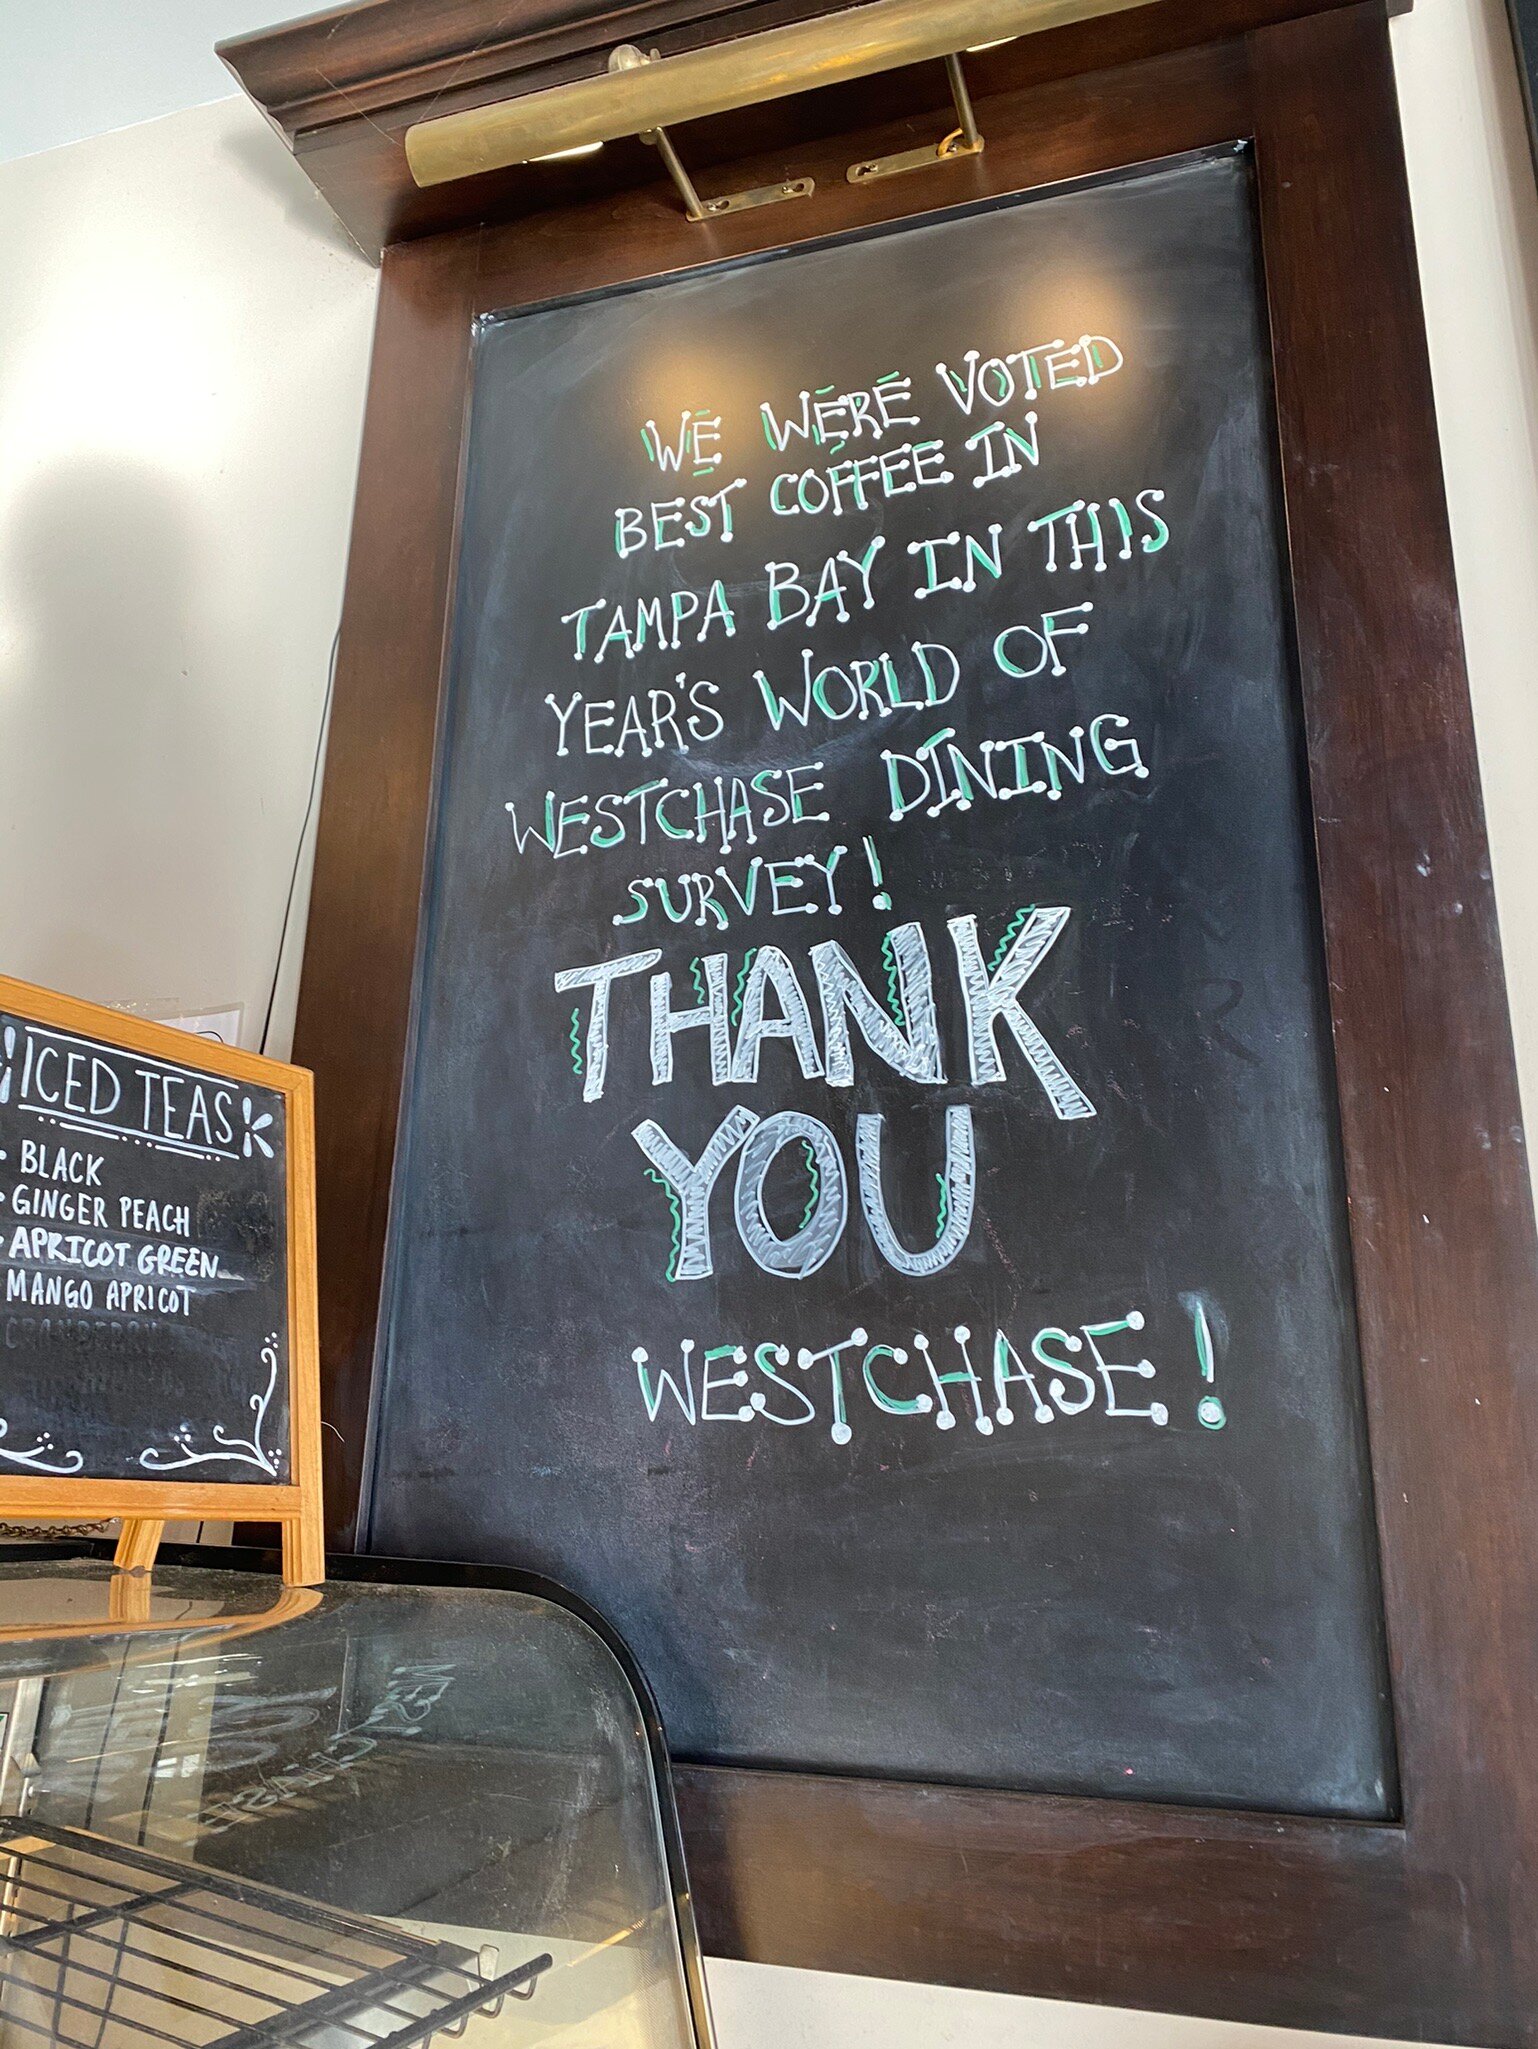 WE WERE VOTED
BEST COFFEE IN
TAMPA BAY IN THIS
YEAR'S WORLD OF
WESTCHASE DINING
SURVEY!
THANK
YOU
WESTCHASE!
ICED TEAS
• BLACK
• GINGER PEACH
• APRICOT GREEN
MANGO APRICOT
CRANBERRY